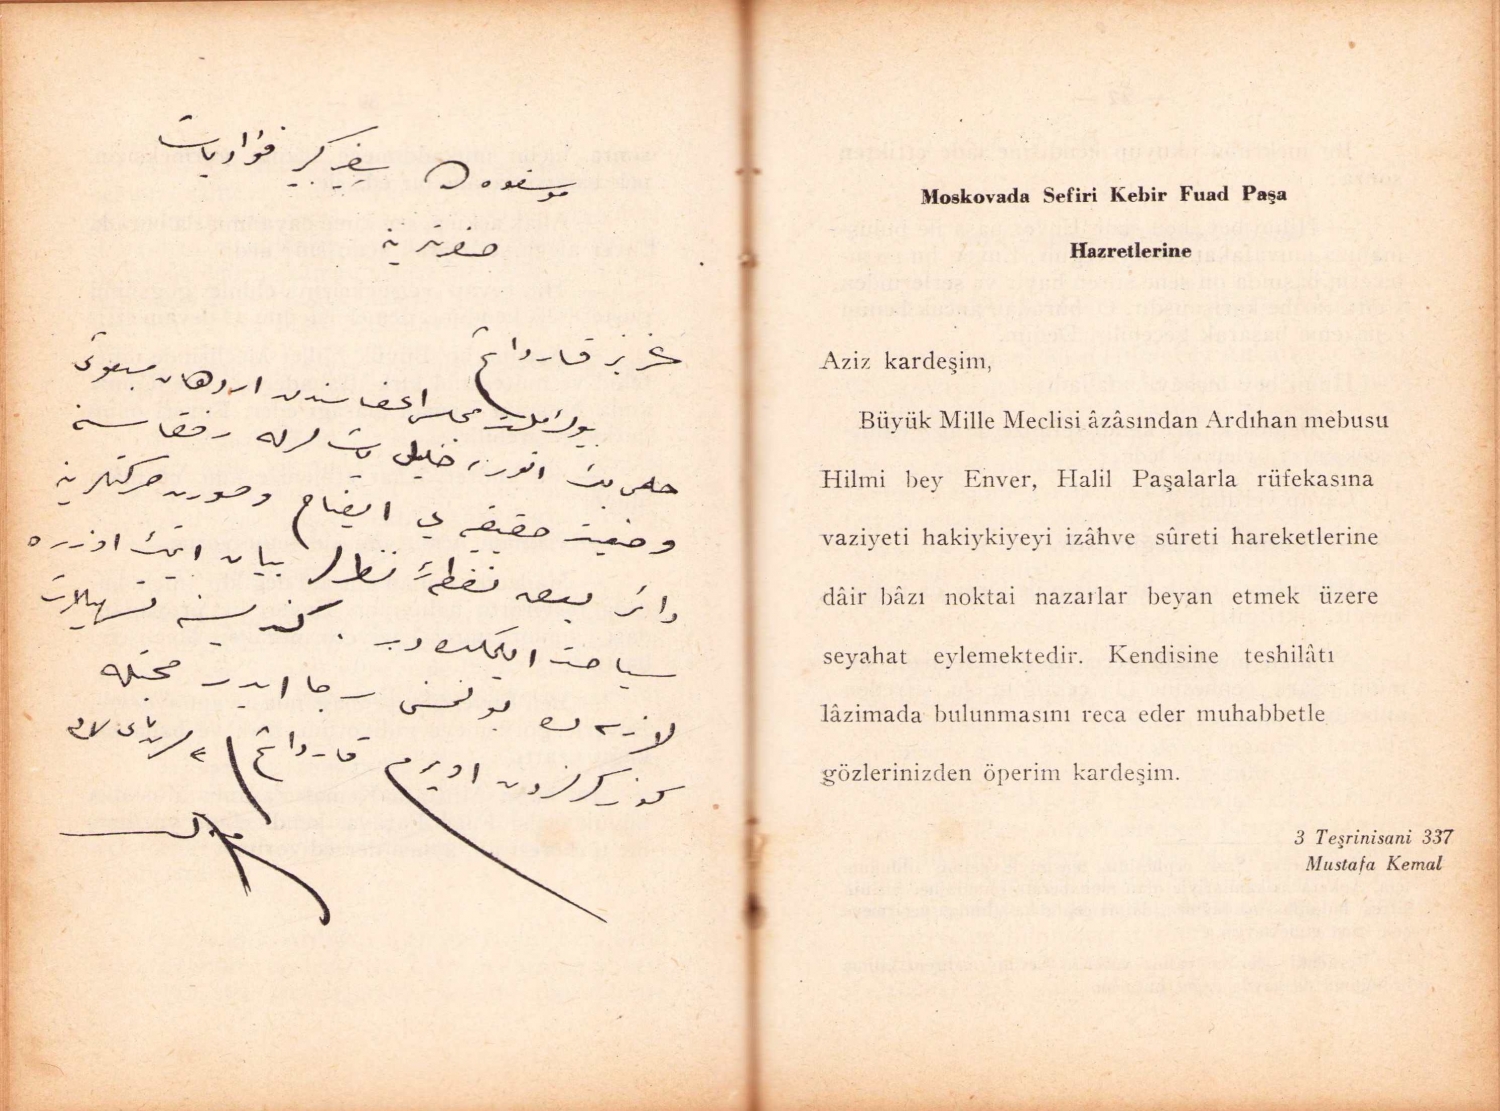 موسقوه ده سفير كبير فؤاد پاشا
حضرتلرينه
عزيز قارداشم
بيوك ملت مجلس اعضاسندن اردهان مبعوثى
حلمى بك انور، خليل پاشالرله رفقاسنه
وضعيت حقيقيه يى ايضاح و صورت حركتلرينه
دائر بعض نقطهٔ نظرلر بيان ايتمك اوزره
سياحت ايلمكده در. كنديسنه تسهيلات
لازمه ده بولنمسنى رجا ايدر محبتله
كوزلركزدن اوپرم قارداشم
Moskovada Sefiri Kebir Fuad Paşa
Hazretlerine
Aziz kardeşim,
Büyük Mille Meclisi âzâsından Ardıhan mebusu
Hilmi bey Enver, Halil Paşalarla rüfekasına
vaziyeti hakiykiyeyi izâhve sûreti hareketlerine
dâir bâzı noktai nazarlar beyan etmek üzere
seyahat eylemektedir. Kendisine teshilâtı
lâzimada bulunmasını reca eder muhabbetle
gözlerinizden öperim kardeşim.
3 Teşrinisani 337
Mustafa Kemal